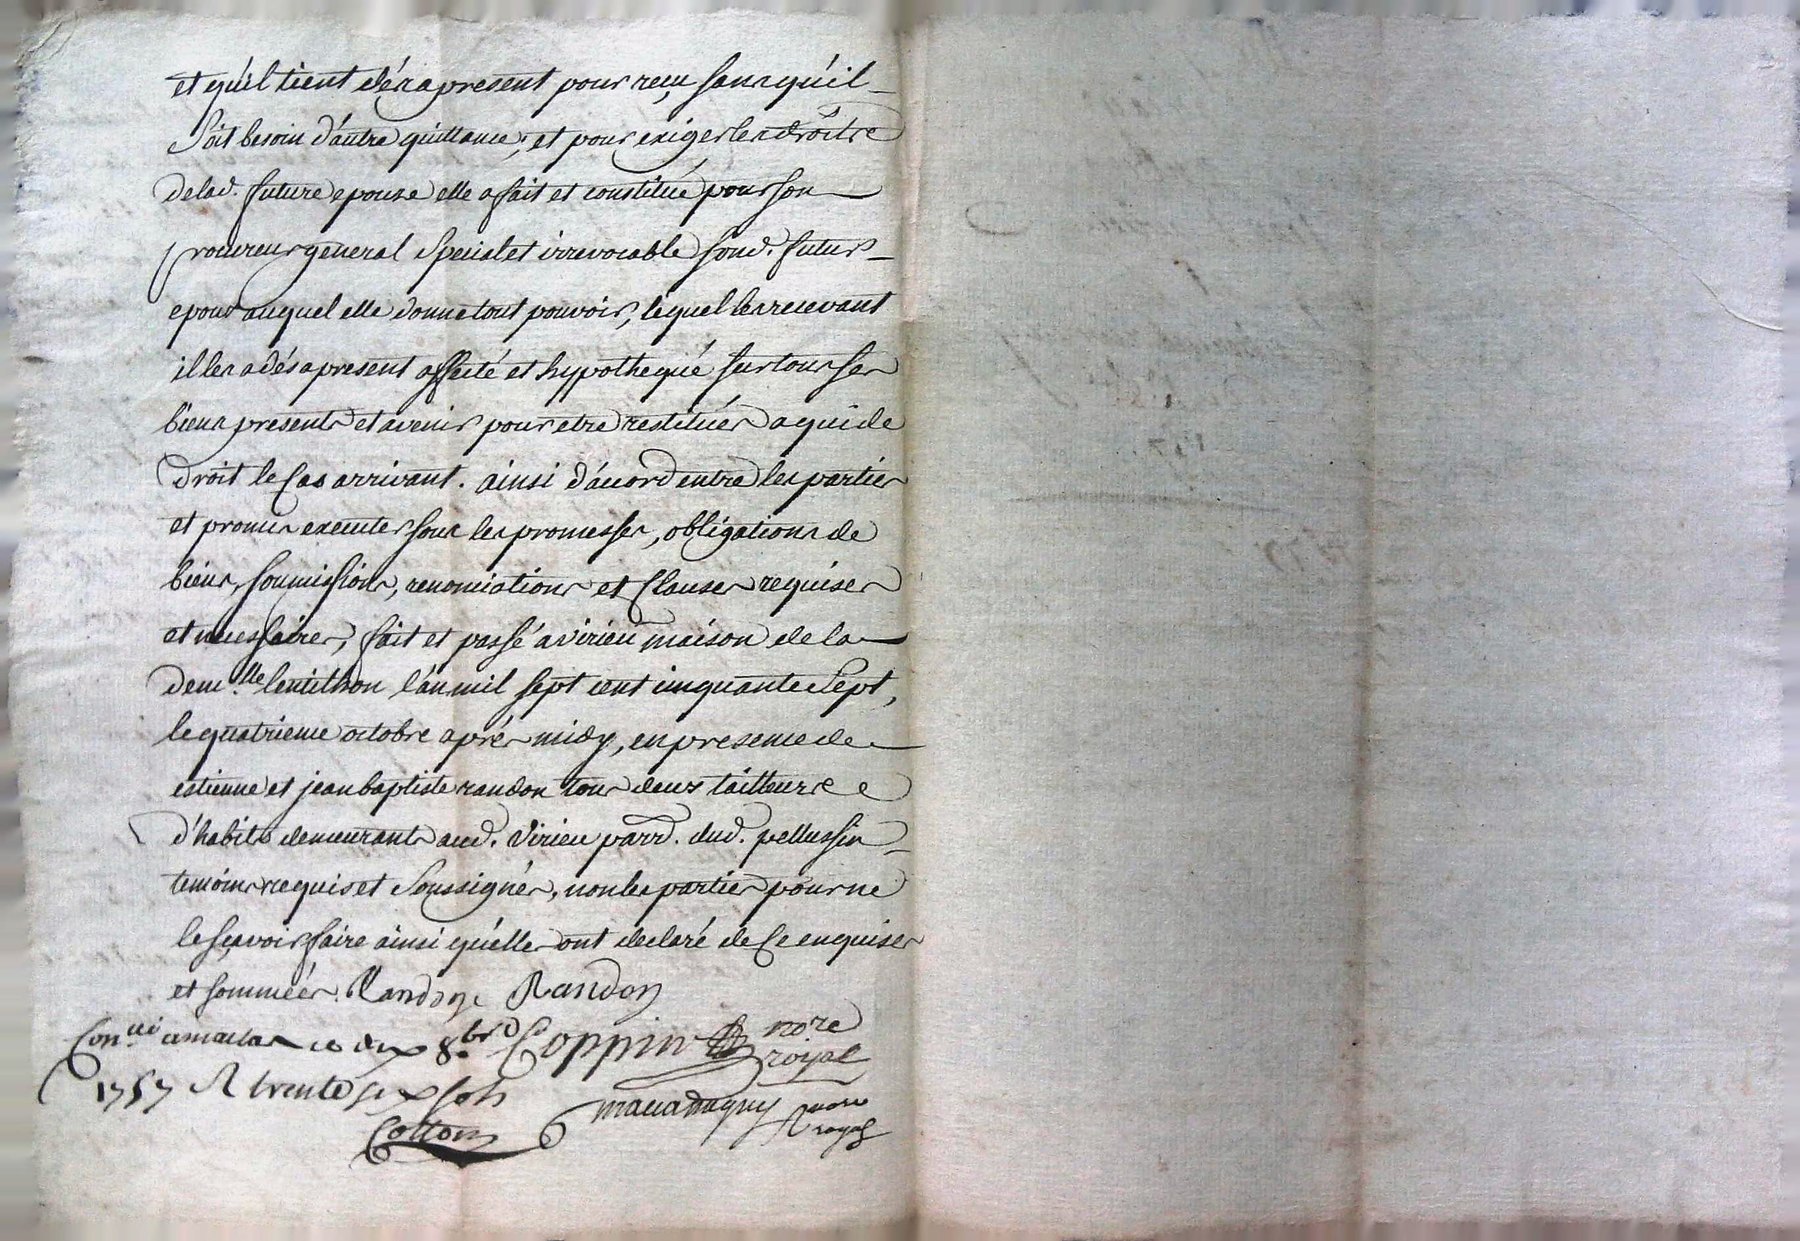 et qu'il tient dés apresent pour reçu sans qu'il
soit besoin d'autre quittance; et pour exiger les droits
de lad. future epouse elle a fait et constitué pour son
procureur general special et irrevocable sond. futur
epoux auquel elle donne tout pouvoir, lequel les recevant
il les a dés apresent affecté et hypothequé sur tous ses
biens presents et avenir pour etre restitués a qui de
droit le Cas arrivant. ainsi d'acord entre les parties
et promis executer sous les promesses, obligations de
biens, soumissions, renonciations et Clauses requises
et necessaires, fait et passé a virieu maison de la
dem.lle lentilhon l'an mil sept cent cinquante Sept,
le quatrieme octobre aprés midy, en presence de
estienne et jean baptiste randon tous deux tailleurs
d'habits demeurants aud. Virieu parr. dud. pellussin
temoins requis et Soussignés, non les parties pour ne
le sçavoir faire ainsi qu'elles ont declaré de Ce enquises
et sommées. Randon Randon
Con.llé amaclas ce dix 8.bre Coppin nore
royal
1757 R trente six sols
nore
royal
Cottom